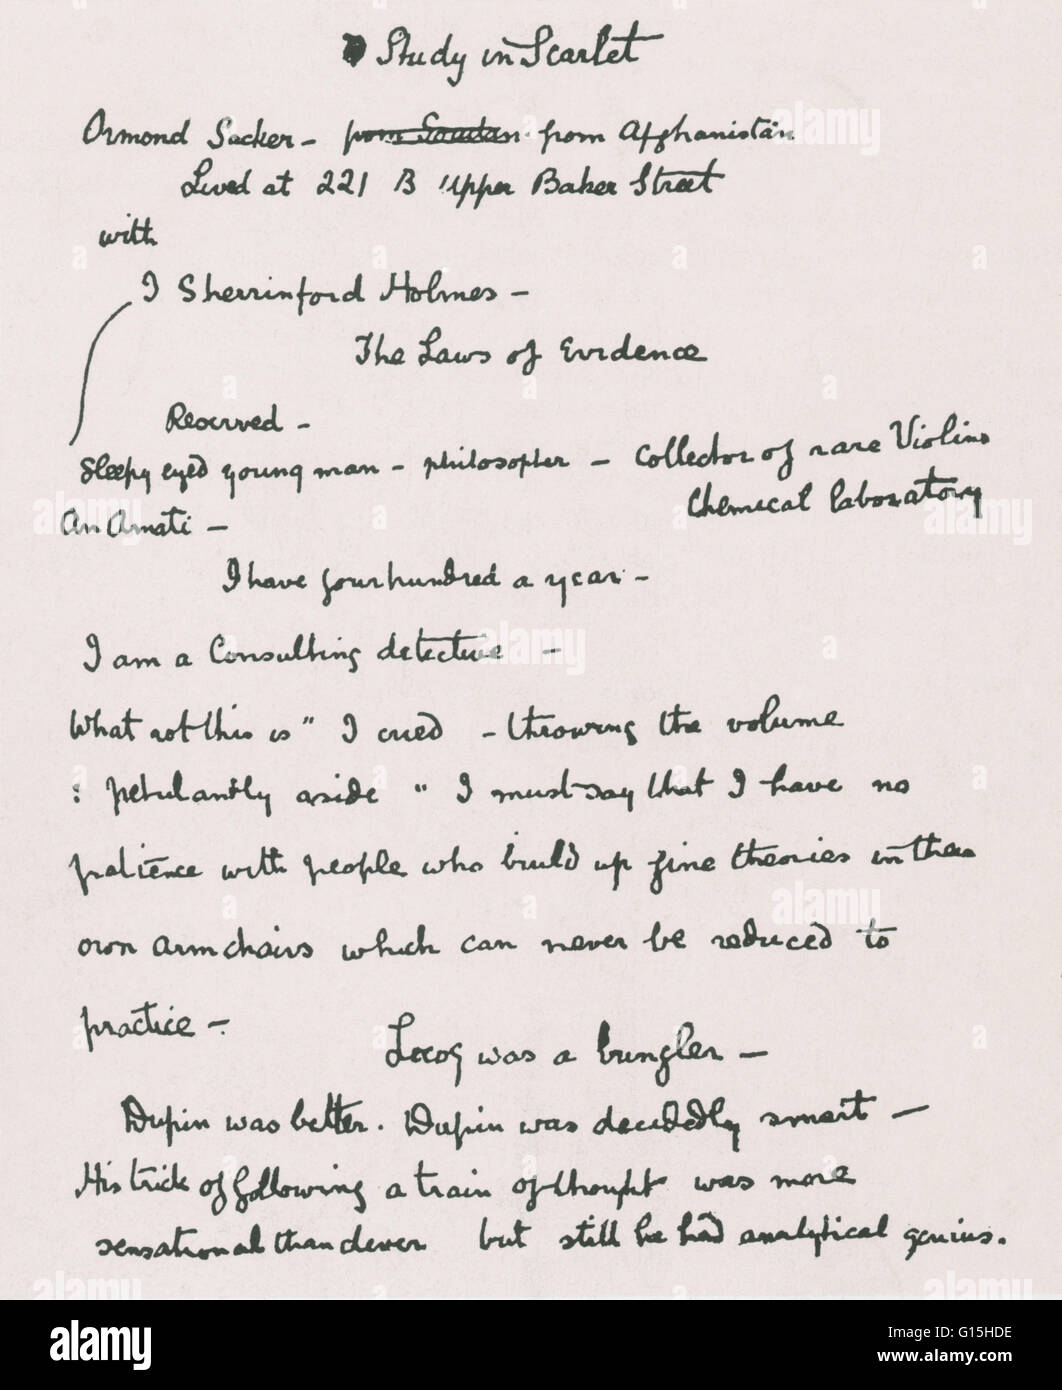 A Study in Scarlet
Ormond Sacker - from Soudan from Afghanistan
Lived at 221 B Upper Baker Street
with
I Sherrinford Holmes -
The Laws of Evidence
Reserved -
Sleepy eyed young man - philosopher - Collector of rare Violins
An Amati - Chemical laboratory
I have four hundred a year -
I am a Consulting detective -
What rot this is" I cried - throwing the volume
: petulantly aside " I must say that I have no
patience with people who build up fine theories in their
own armchairs which can never be reduced to
practice -
Lecoq was a bungler -
Dupin was better. Dupin was decidedly smart -
His trick of following a train of thought was more
sensational than clever but still he had analytical genius.
alamy
Image ID: G15HDE
www.alamy.com